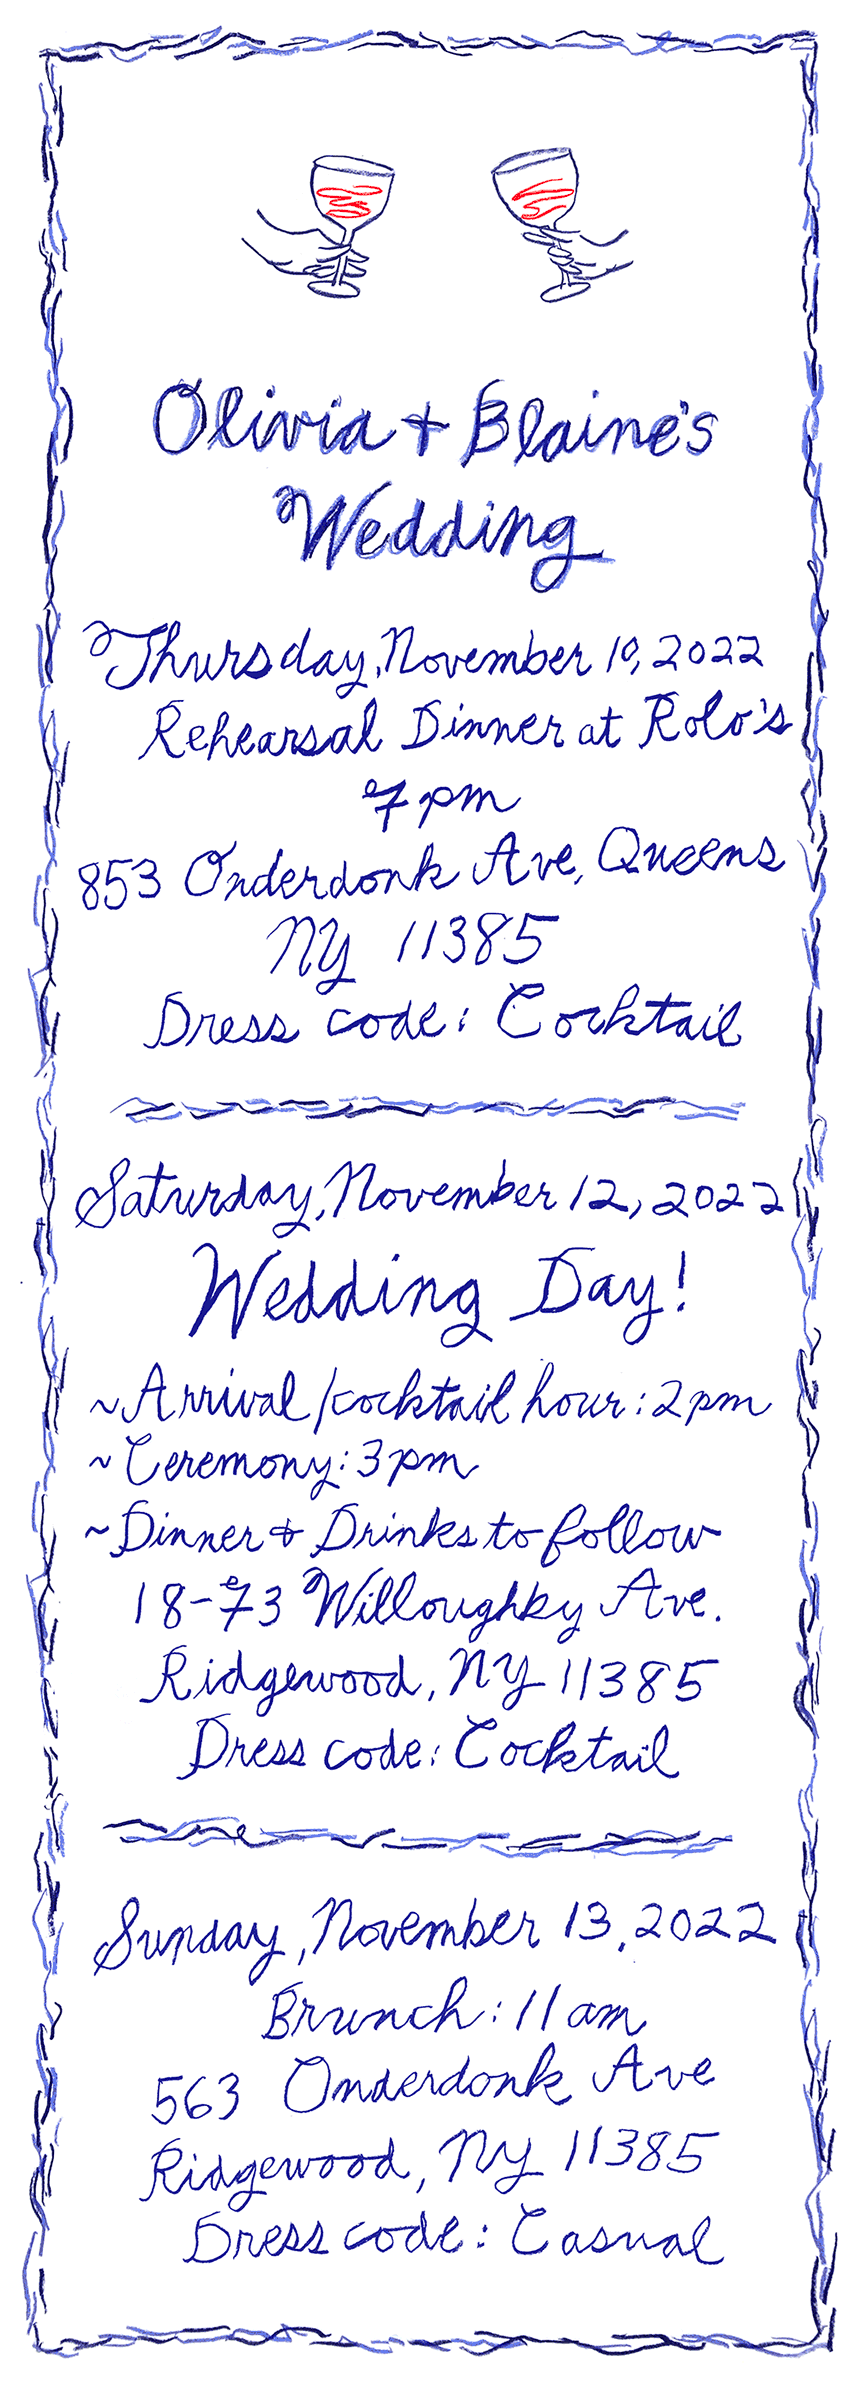 Olivia + Blaine's
Wedding
Thursday, November 10, 2022
Rehearsal Dinner at Rolo's
7pm
853 Onderdonk Ave, Queens
NY 11385
Dress code: Cocktail
Saturday, November 12, 2022
Wedding Day!
~Arrival/cocktail hour: 2pm
~Ceremony: 3pm
~Dinner + Drinks to follow
18-73 Willoughby Ave.
Ridgewood, NY 11385
Dress code: Cocktail
Sunday, November 13, 2022
Brunch: 11am
563 Onderdonk Ave
Ridgewood, NY 11385
Dress code: Casual